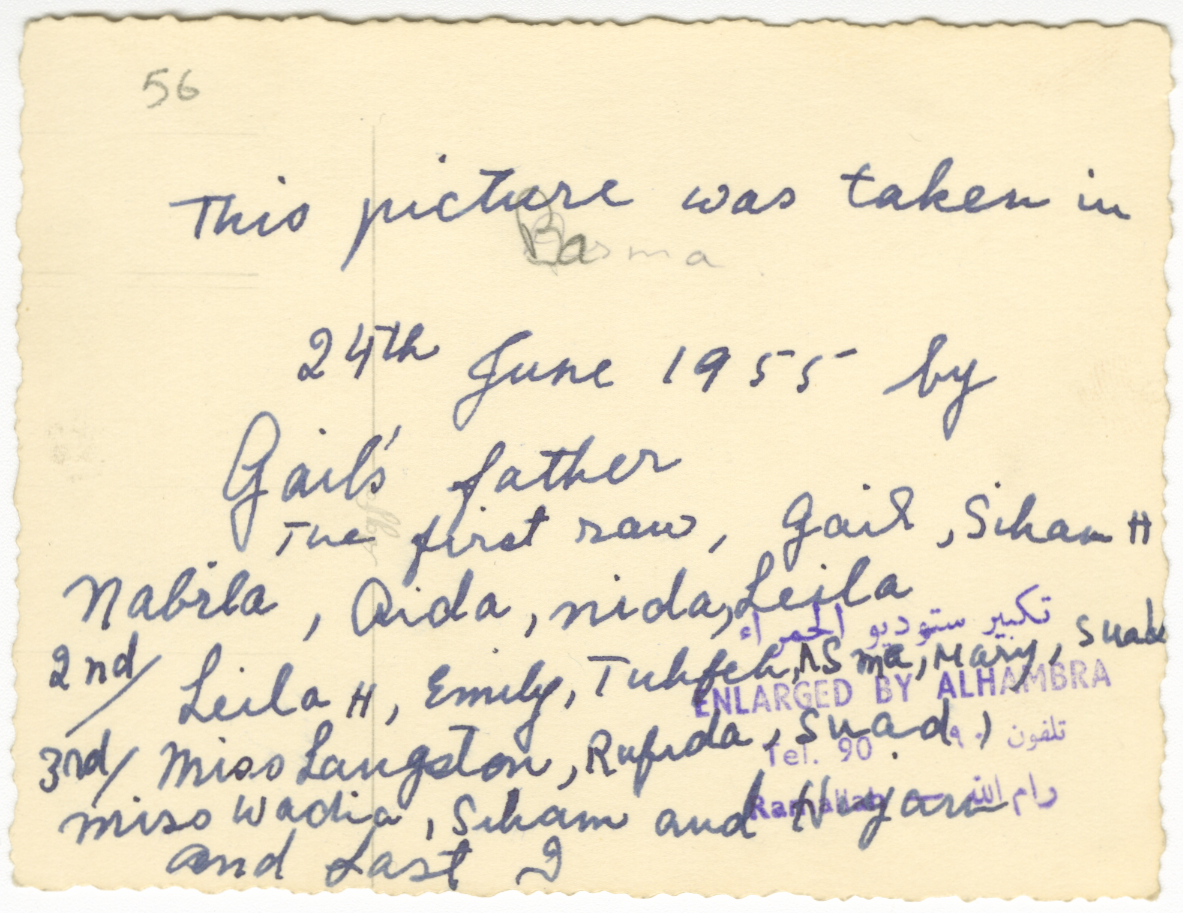 56
This picture was taken in
Basma
24th June 1955 by
Gail's father
The first raw, Gail, Siham H
Nabila, Aida, nida, Leila
تكبير ستوديو الحمراء
2nd/ Leila H, Emily, Tuhfeh, ASma, Mary, Suad
ENLARGED BY ALHAMBRA
3rd/ Miss Langston, Rufida, Suad,
Tel. 90 تلفون ٩٠
miss Wadia, Siham and Hyam
Ramallah — رام الله
and Last I